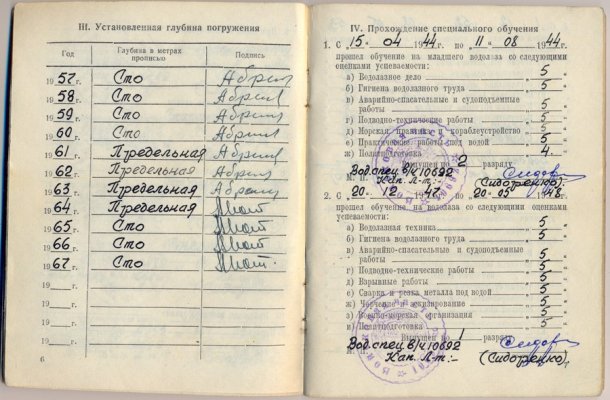 III. Установленная глубина погружения
Год Глубина в метрах прописью Подпись
1957 г. Сто
1958 г. Сто
1959 г. Сто
1960 г. Сто
1961 г. Предельная
1962 г. Предельная
1963 г. Предельная
1964 г. Предельная
1965 г. Сто
1966 г. Сто
1967 г. Сто
19 г.
19 г.
19 г.
19 г.
6
IV. Прохождение специального обучения
1. С „15“ 04 1944 г. по „11“ 08 1944 г.
прошел обучение на младшего водолаза со следующими
оценками успеваемости:
а) Водолазное дело 5
б) Гигиена водолазного труда 5
в) Аварийно-спасательные и судоподъемные
работы 5
г) Подводно-технические работы 5
д) Морская практика и кораблеустройство 5
е) Практические работы под водой 5
ж) Политподготовка 4
Выпущен по 2 разряду
Вод. спец. в/ч 10692
Кап. Л-т:- (Сидоренко)
2. С „20“ 12 1947 г. по „20“ 05 1948 г.
прошел обучение на водолаза со следующими оценками
успеваемости:
а) Водолазная техника 5
б) Гигиена водолазного труда 5
в) Аварийно-спасательные и судоподъемные
работы 5
г) Подводно-технические работы 5
д) Взрывные работы 5
е) Сварка и резка металла под водой 5
ж) Черчение и эскизирование 5
з) Военно-морская организация 5
и) Политподготовка 5
Выпущен по 1 разряду
Вод. спец. в/ч 10692
Кап. Л-т:- (Сидоренко)